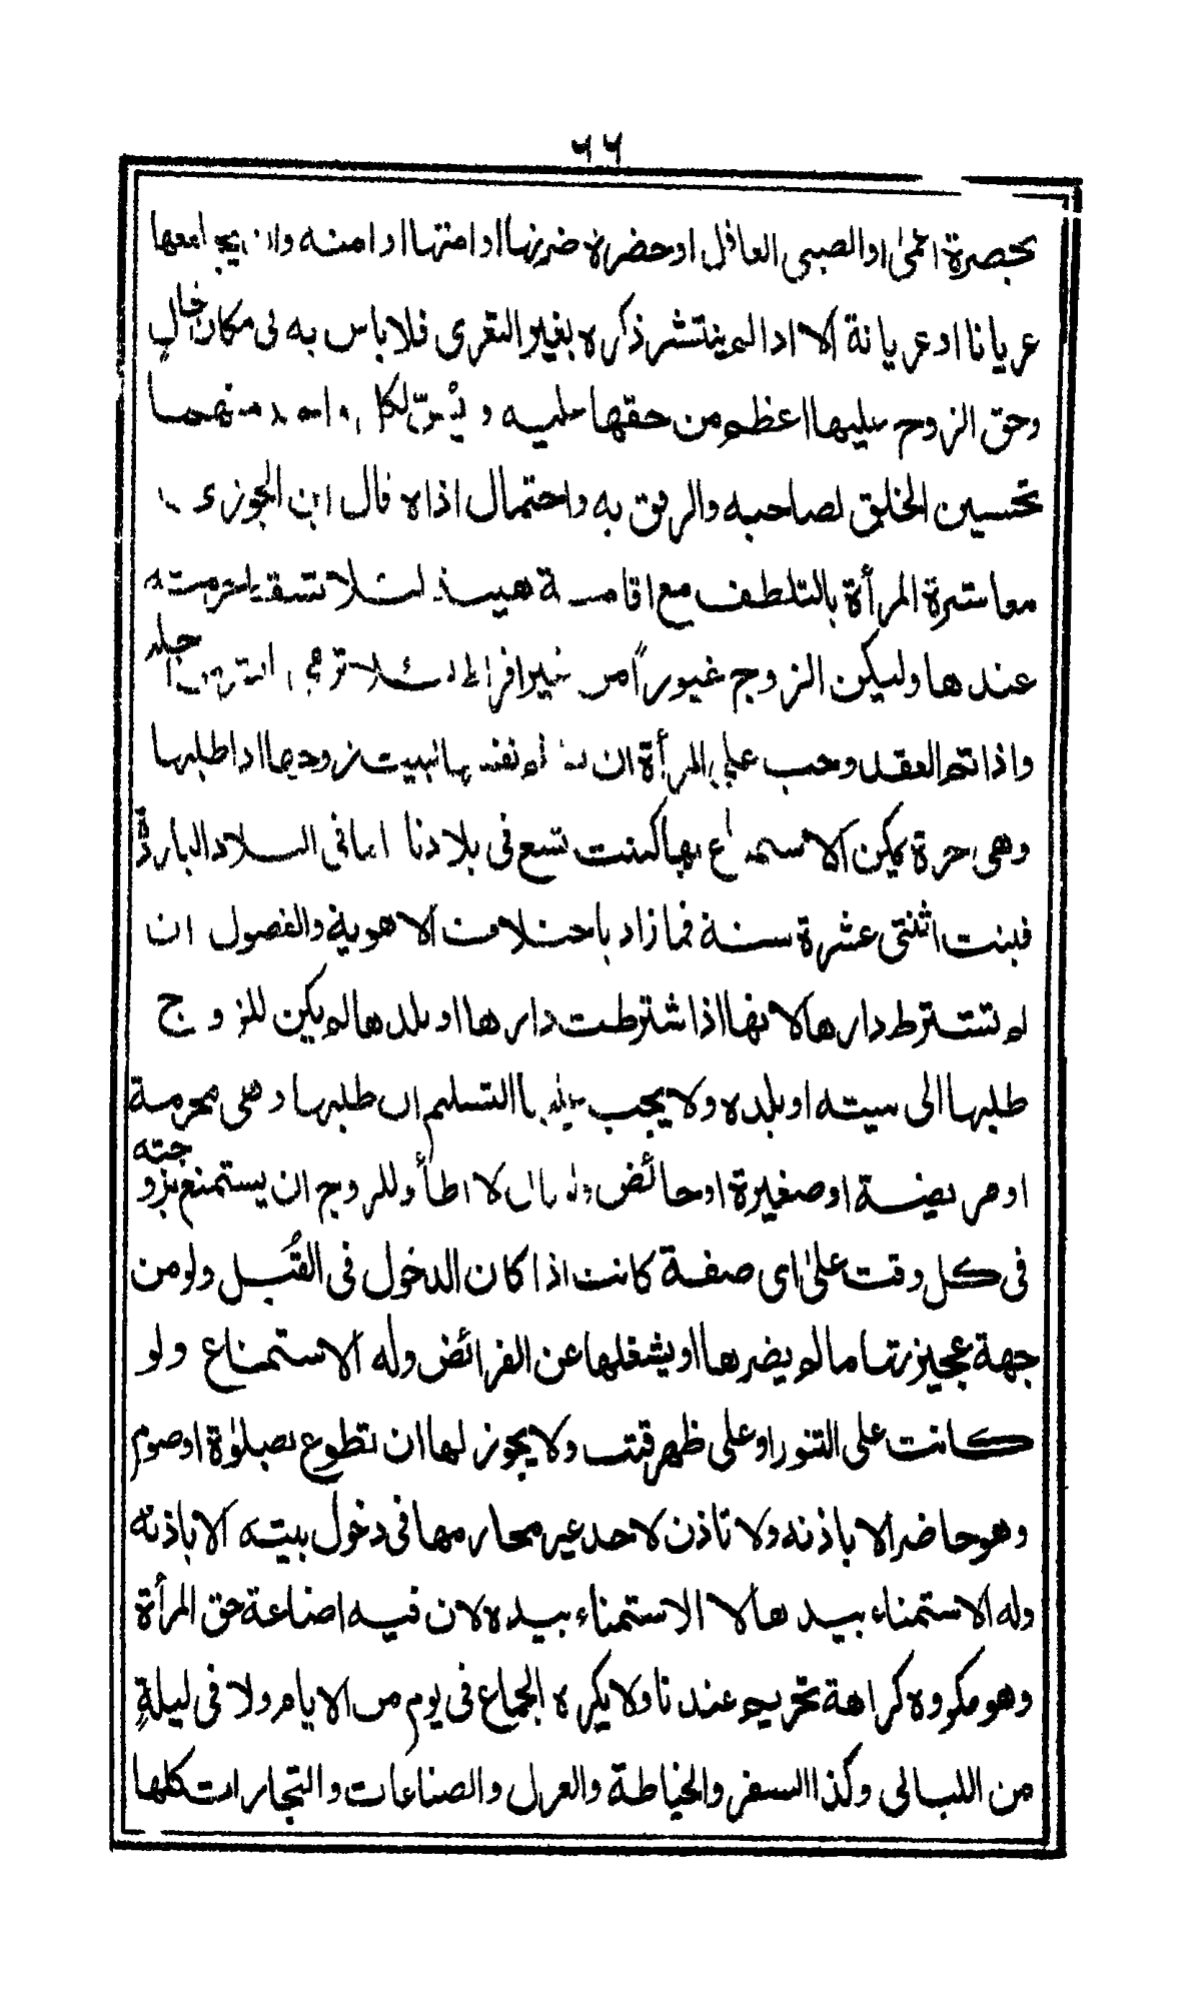 ٦٦
بحضرة اعمى او الصبى العاقل او حضرة ضرتها او امتها او امته وان يجامعها
عريانا او عريانة الا اذا لم ينتشر ذكره بغير التعرى فلا باس به فى مكان خالٍ
وحق الزوج عليها اعظم من حقها عليه و يُسَنّ لكل واحد منهما
تحسين الخلق لصاحبه والرفق به واحتمال اذاه قال ابن الجوزى
معاشرة المرأة بالتلطف مع اقامة هيبة لئلا تسقط حرمته
عندها وليكن الزوج غيوراً من غير افراط لئلا ترمى اجله
واذا تم العقد وجب على المرأة ان نفسها لبيت زوجها اذا طلبها
وهى حرة يمكن الاستمتاع بها كبنت تسع فى بلادنا اما فى البلاد الباردة
فبنت اثنتى عشرة سنة فما زاد باختلاف الاهوية والفصول ان
لم تشترط دارها لانها اذا اشترطت دارها او بلدها لم يكن للزوج
طلبها الى بيته او بلده ولا يجب عليها التسليم ان طلبها وهى محرمة
او مريضة او صغيرة او حائض ولو قال لا اطأ وللزوج ان يستمتع بزوجته
فى كل وقت على اى صفة كانت اذا كان الدخول فى القُبُل ولو من
جهة عجيزتها ما لم يضرها او يشغلها عن الفرائض وله الاستمتاع ولو
كانت على التنور او على ظهر قتب ولا يجوز لها ان تطوع بصلوٰة او صوم
وهو حاضر الا باذنه ولا تاذن لاحد غير محارمها فى دخول بيته الا باذنه
وله الاستمناء بيدها لا الاستمناء بيده لان فيه اضاعة حق المرأة
وهو مكروه كراهة تحريم عندنا ولا يكره الجماع فى يوم من الايام ولا فى ليلةٍ
من الليالى وكذا السفر والخياطة والغزل والصناعات والتجارات كلها